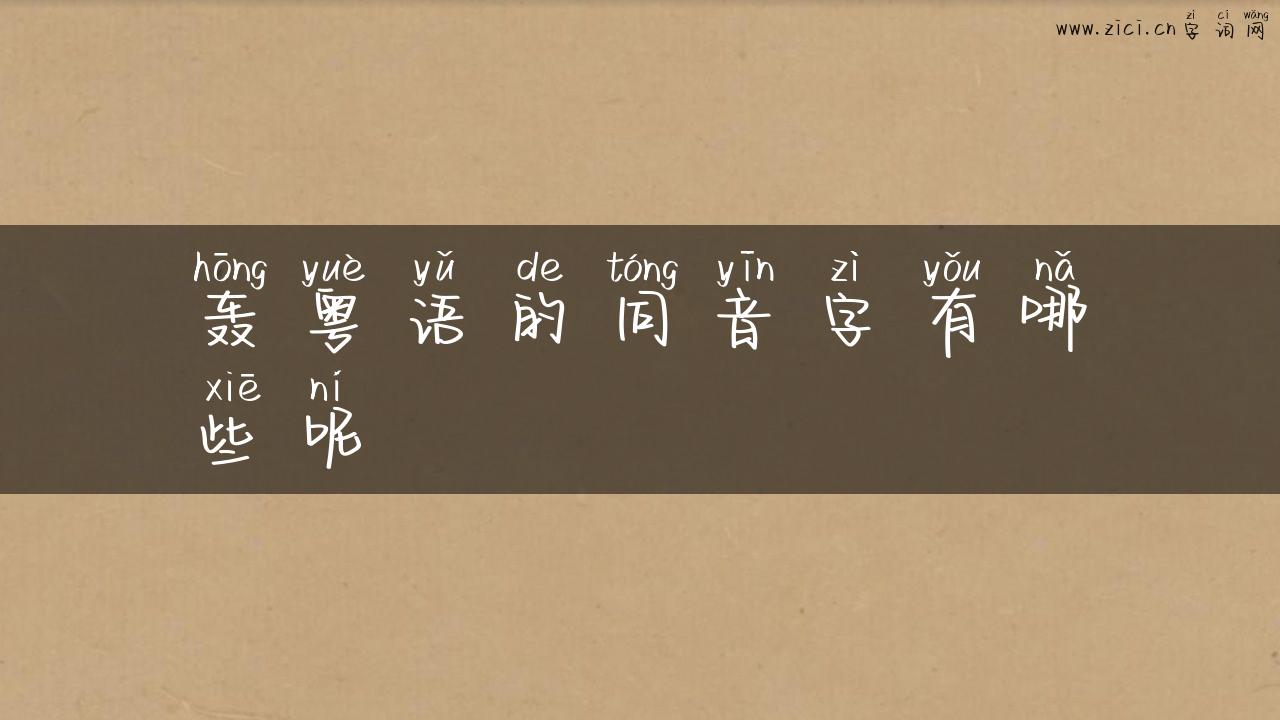 zì cí wǎng
www.zici.cn 字词网
hōng yuè yǔ de tóng yīn zì yǒu nǎ
轰粤语的同音字有哪
xiē ní
些呢